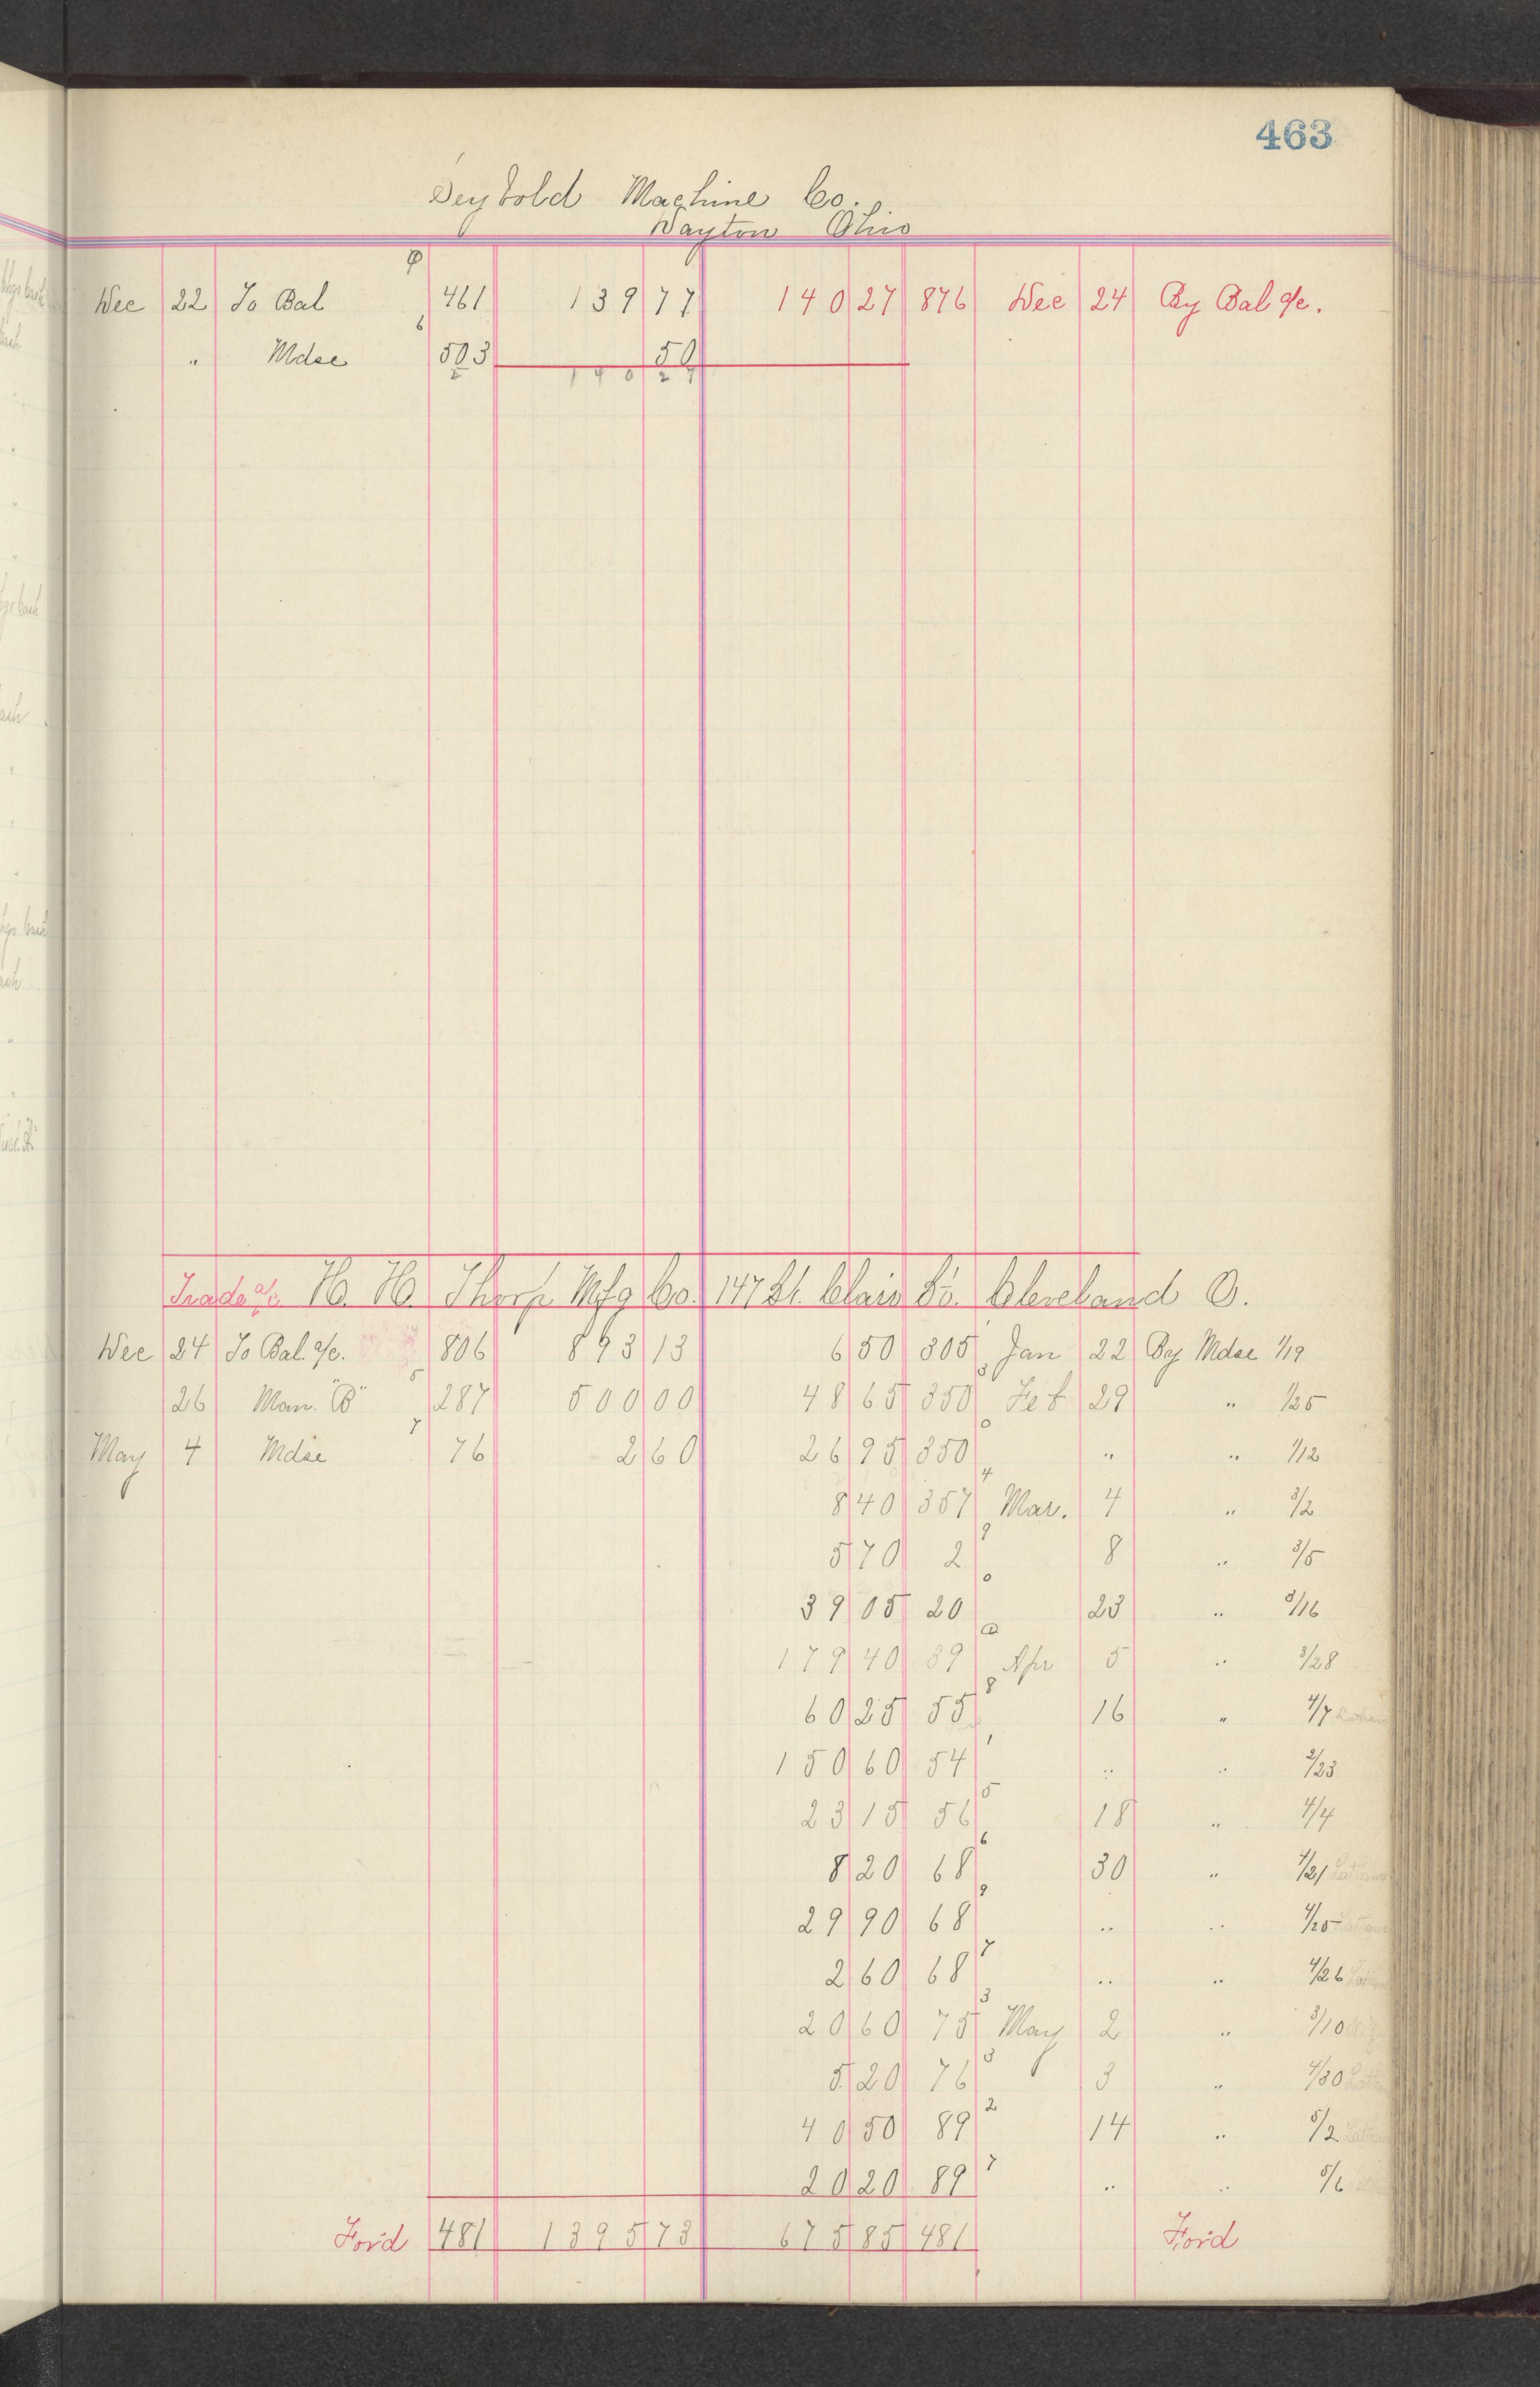 463
Seybold Machine Co.
Dayton Ohio
Dec 22 To Bal 461 139 77 140 27 876 Dec 24 By Bal a/c.
" Mdse 503 50
140 27
Trade a/c H. H. Thorp Mfg Co. 147 St. Clair St. Cleveland O.
Dec 24 To Bal. a/c. 806 893 13 6 50 305 Jan 22 By Mdse 1/19
26 Man. "B" 287 500 00 48 65 350 Feb 29 " 1/25
May 4 Mdse 76 2 60 26 95 350 " " 1/12
8 40 357 Mar. 4 " 3/2
5 70 2 8 " 3/5
39 05 20 23 " 3/16
179 40 39 Apr 5 " 3/28
60 25 55 16 " 4/7
150 60 54 " " 2/23
23 15 56 18 " 4/4
8 20 68 30 " 4/21
29 90 68 " " 4/25
2 60 68 " " 4/26
20 60 75 May 2 " 3/10
5 20 76 3 " 4/30
40 50 89 14 " 5/2
20 20 89 " " 5/6
For'd 481 1395 73 675 85 481 For'd